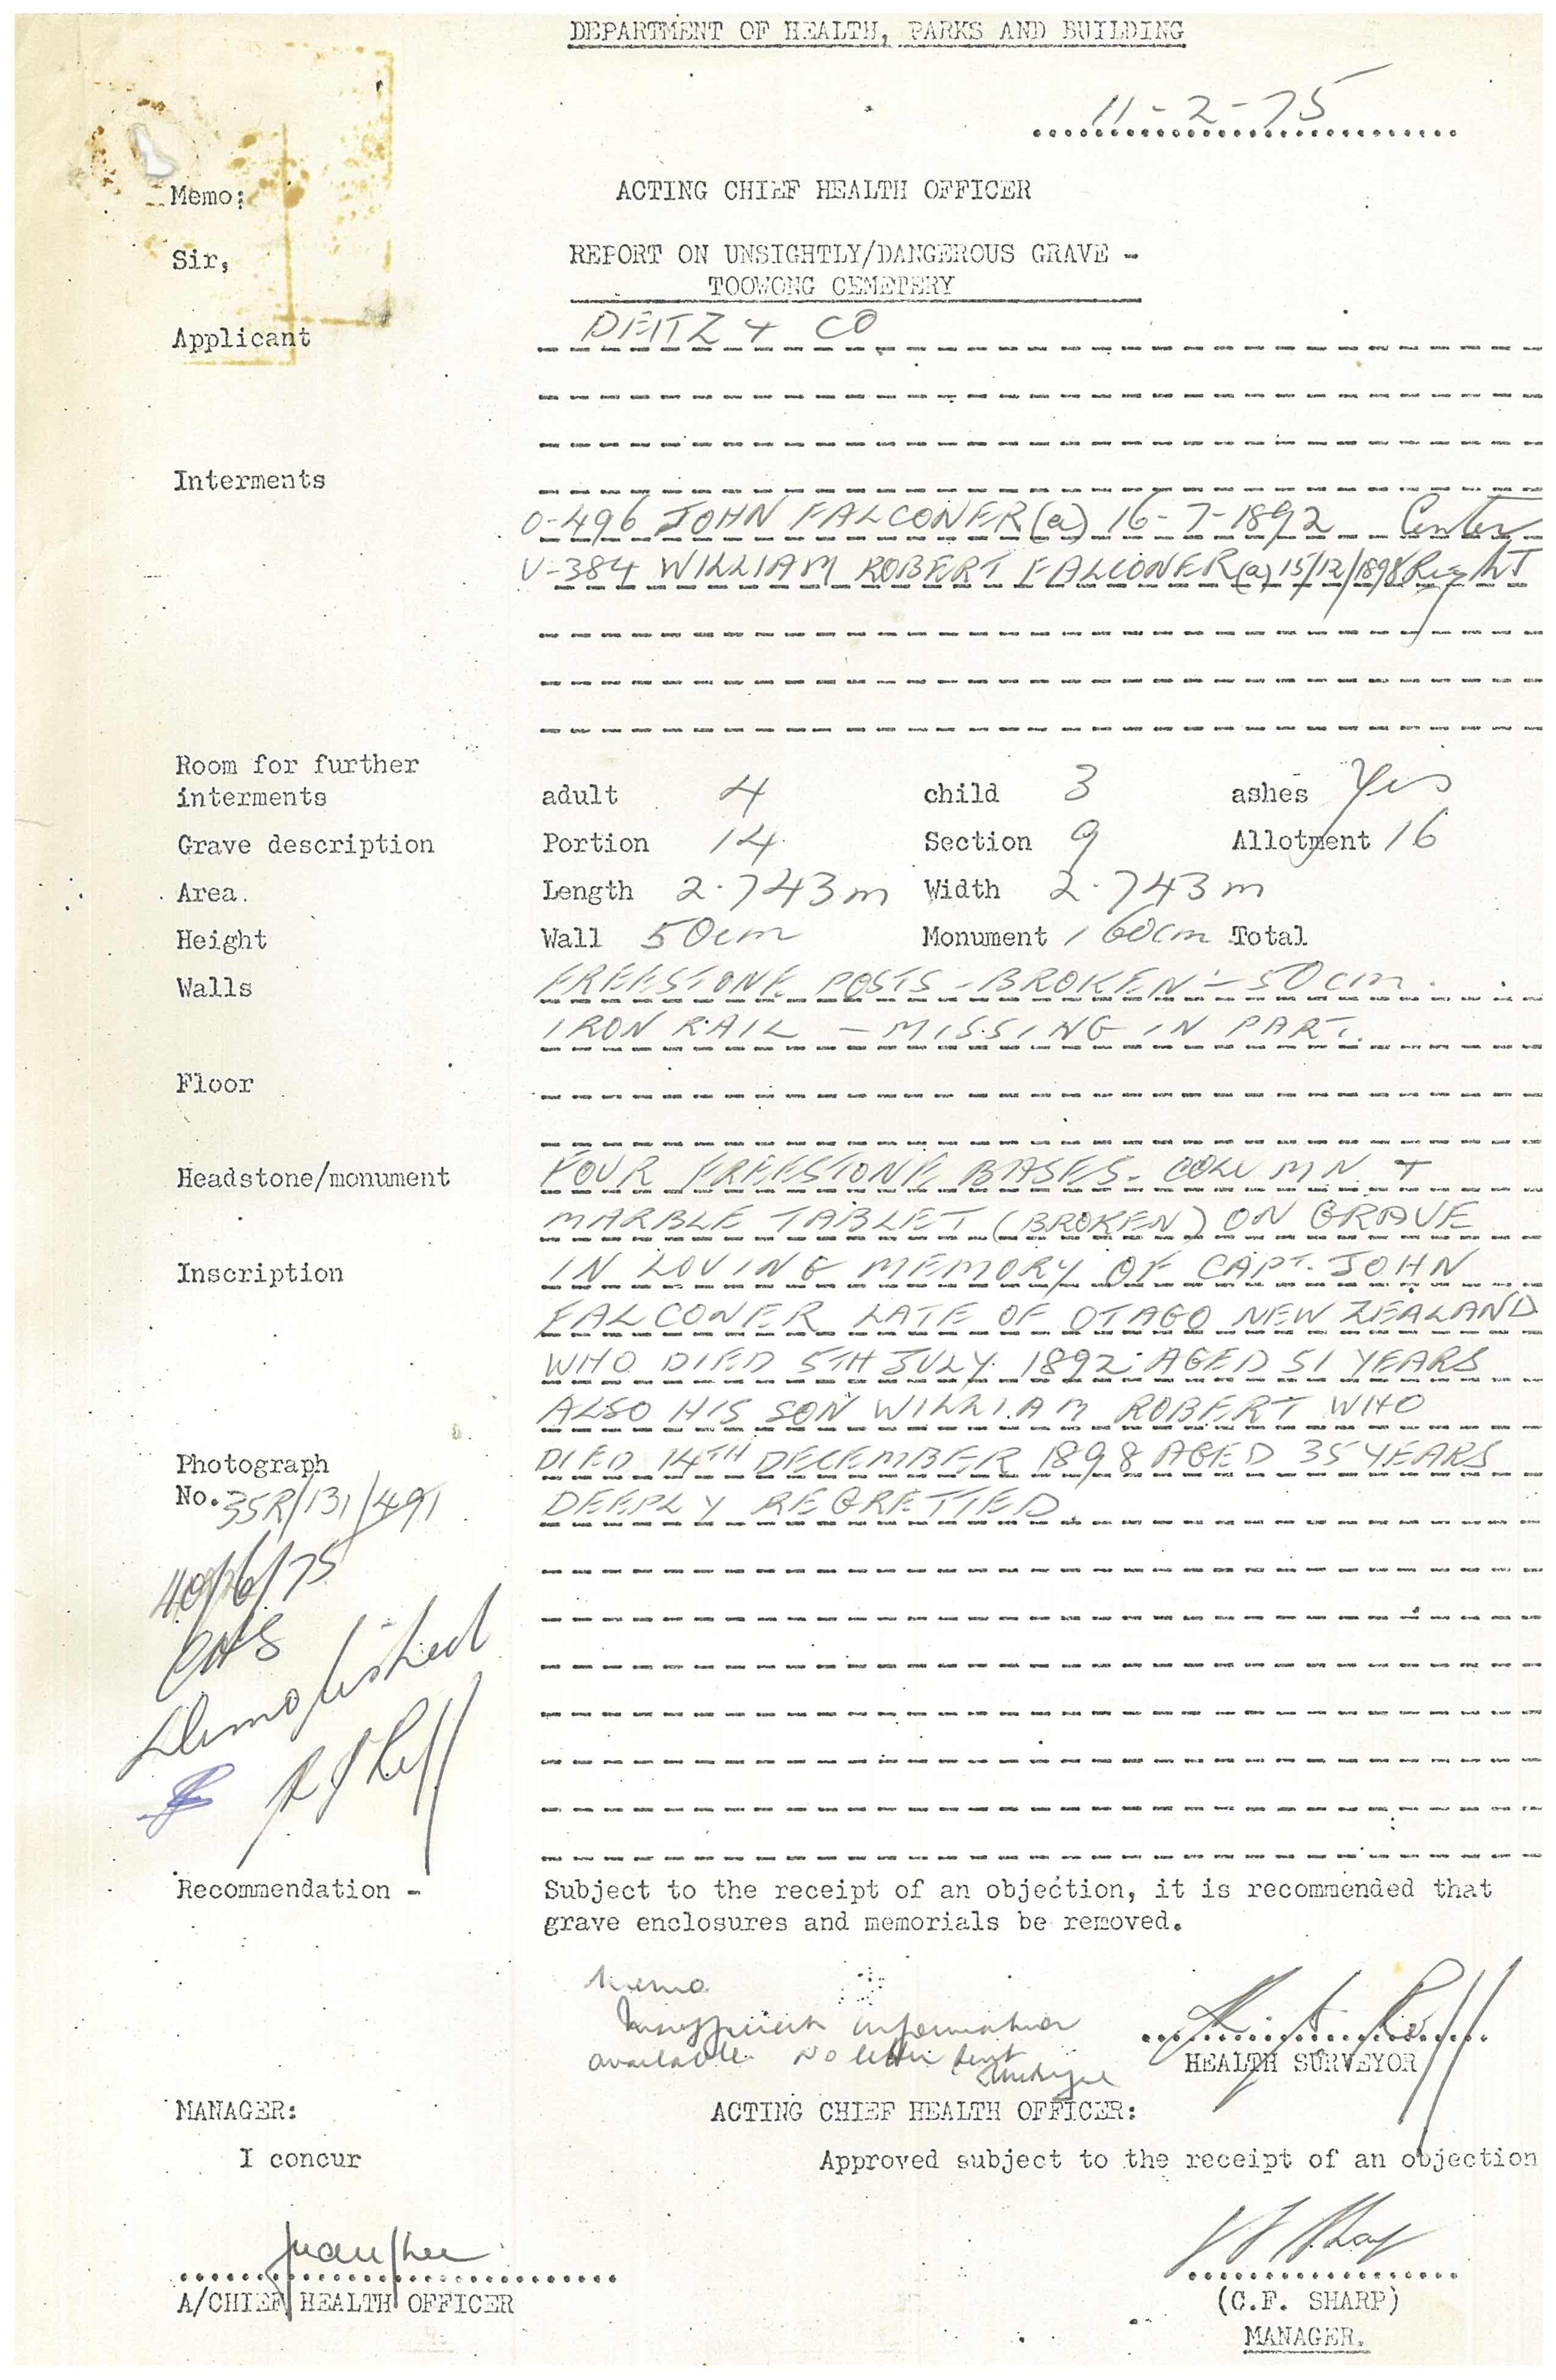 DEPARTMENT OF HEALTH, PARKS AND BUILDING
11-2-75
Memo: ACTING CHIEF HEALTH OFFICER
Sir, REPORT ON UNSIGHTLY/DANGEROUS GRAVE -
TOOWONG CEMETERY
Applicant DEITZ + CO
Interments
O-496 JOHN FALCONER (a) 16-7-1892 Center
V-384 WILLIAM ROBERT FALCONER (a) 15/12/1898 Right
Room for further
interments adult 4 child 3 ashes Yes
Grave description Portion 14 Section 9 Allotment 16
Area. Length 2.743m Width 2.743m
Height Wall 50cm Monument 160cm Total
Walls FREESTONE POSTS - BROKEN - 50cm.
IRON RAIL - MISSING IN PART.
Floor
Headstone/monument FOUR FREESTONE BASES. COLUMN +
MARBLE TABLET (BROKEN) ON GRAVE
Inscription IN LOVING MEMORY OF CAPT. JOHN
FALCONER LATE OF OTAGO NEW ZEALAND
WHO DIED 5TH JULY 1892 AGED 51 YEARS
ALSO HIS SON WILLIAM ROBERT WHO
Photograph DIED 14TH DECEMBER 1898 AGED 35 YEARS
No. 35R/131/491 DEEPLY REGRETTED.
/6/75
Demolished
Recommendation - Subject to the receipt of an objection, it is recommended that
grave enclosures and memorials be removed.
Memo
Insufficient information
available. No letter sent
HEALTH SURVEYOR
MANAGER: ACTING CHIEF HEALTH OFFICER:
I concur Approved subject to the receipt of an objection
A/CHIEF HEALTH OFFICER (C.F. SHARP)
MANAGER.